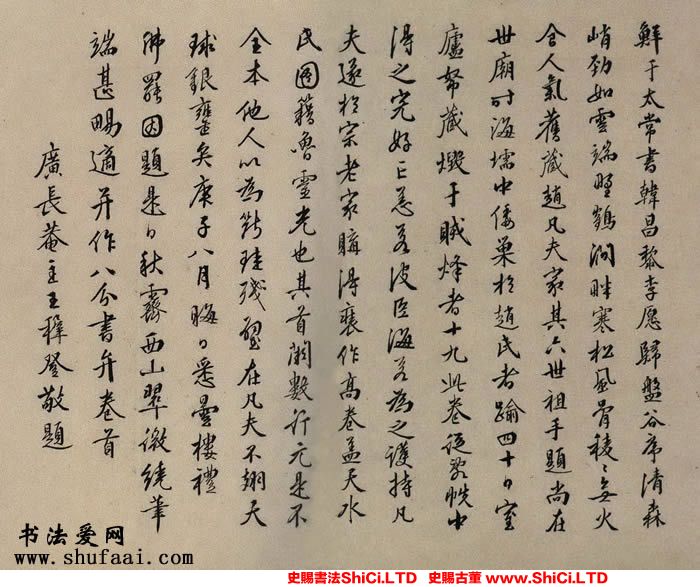 鮮于太常書韓昌黎李愿歸盤谷序清森
峭勁如雲端野鶴澗畔寒松風骨稜〻無火
食人氣舊藏趙凡夫家其六世祖手題尚在
世廟時海壖中倭巢於趙氏者踰四十日室
廬帑藏燬于賊烽者十九此卷從敗帙中
得之完好亡恙若波臣海若為之護持凡
夫遂於宗老家購得裝作高卷蓋天水
氏圖籍魯靈光也其首闕數行元是不
全本他人以為斷珪殘璧在凡夫不翅天
球銀甕矣庚子八月晦日悉曇樓禮
佛罷因題是日秋霽西山翠微繞筆
端甚暢適并作八分書弁卷首
廣長菴主王穉登敬題
书法爱网
www.shufaai.com
史賜書法ShiCi.LTD 史賜古董 www.ShiCi.LTD